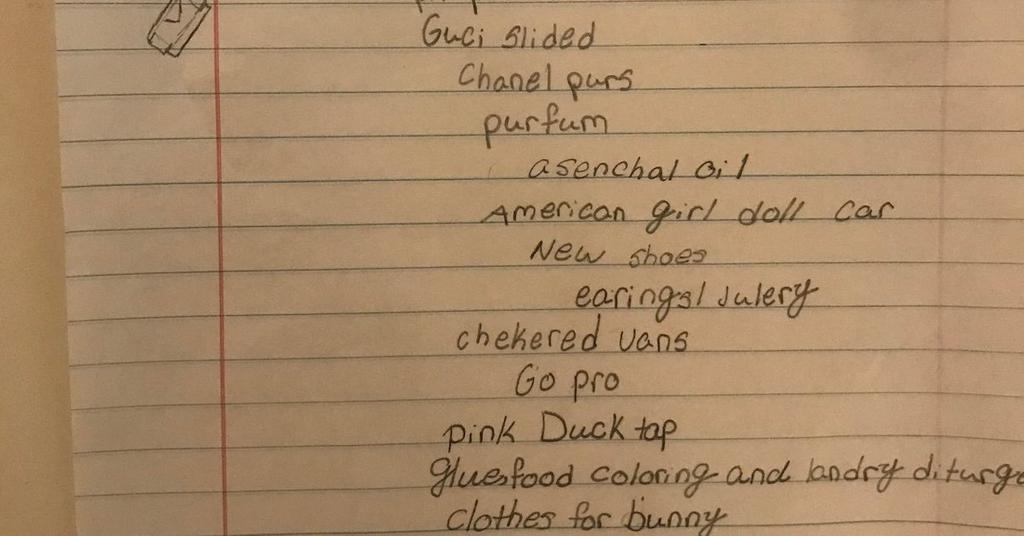 Guci slided
Chanel purs
purfum
asenchal oil
American girl doll car
New shoes
earings/julery
chekered vans
Go pro
pink Duck tap
glue, food coloring and landry diturge
clothes for bunny